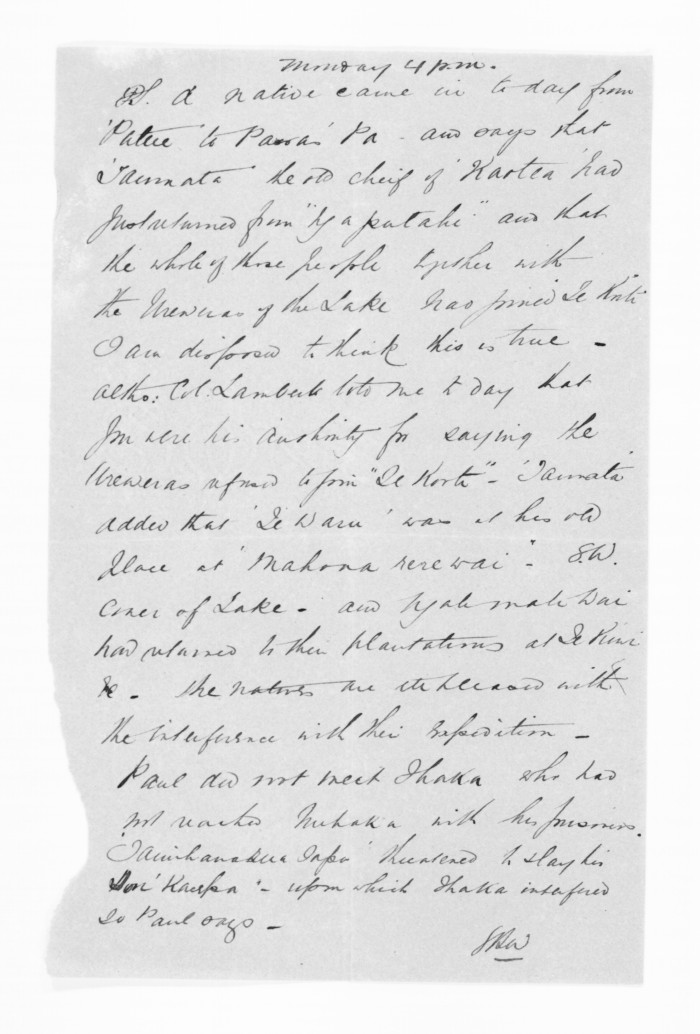 Monday 4 p.m.
P.S. A native came in to day from
'Patee' to Pawas' Pa - and says that
'Taumata' the old cheif of 'Kaotea' had
Just returned from "Ng a putahi" and that
the whole of those people together with
the Ureweras of the Lake has joined Te Kooti
I am disposed to think this is true -
altho: Col: Lambert told me to day that
you were his authority for saying the
Ureweras refused to join "Te Koote" - 'Taumata'
added that 'Te Waru' was at his old
place at "Mahona rerewai" - S.W.
Coner of Lake - and Ngate mate Wai
had returned to their plantations at Te Kiwi
&c - The natives are displeased with
the interference with their expedition -
Paul did not meet Ihaka who had
not reached Nuhaka with his prisoners.
threatened to slay his
Son - upon which Ihaka interfered
So Paul says -